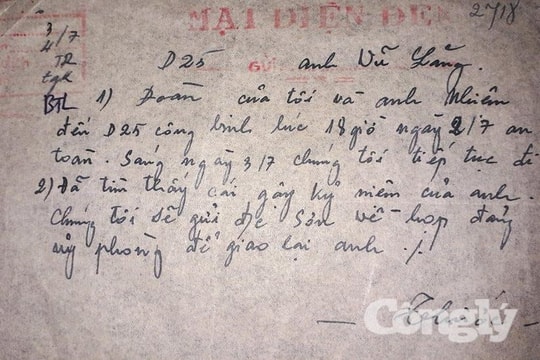 MẠI DIỆN ĐẾN
2718
3
4/7
TR
tgk
BTL
D25 GỬI anh Vũ Lăng.
1) Đoàn của tôi và anh Nhiêm
đến D25 công binh lúc 18 giờ ngày 2/7 an
toàn. Sáng ngày 3/7 chúng tôi tiếp tục đi
2) Đã tìm thấy cái gậy kỷ niệm của anh.
Chúng tôi sẽ gửi đ/c Sơn về họp đảng
ủy phòng để giao lại anh ./.
Công lý